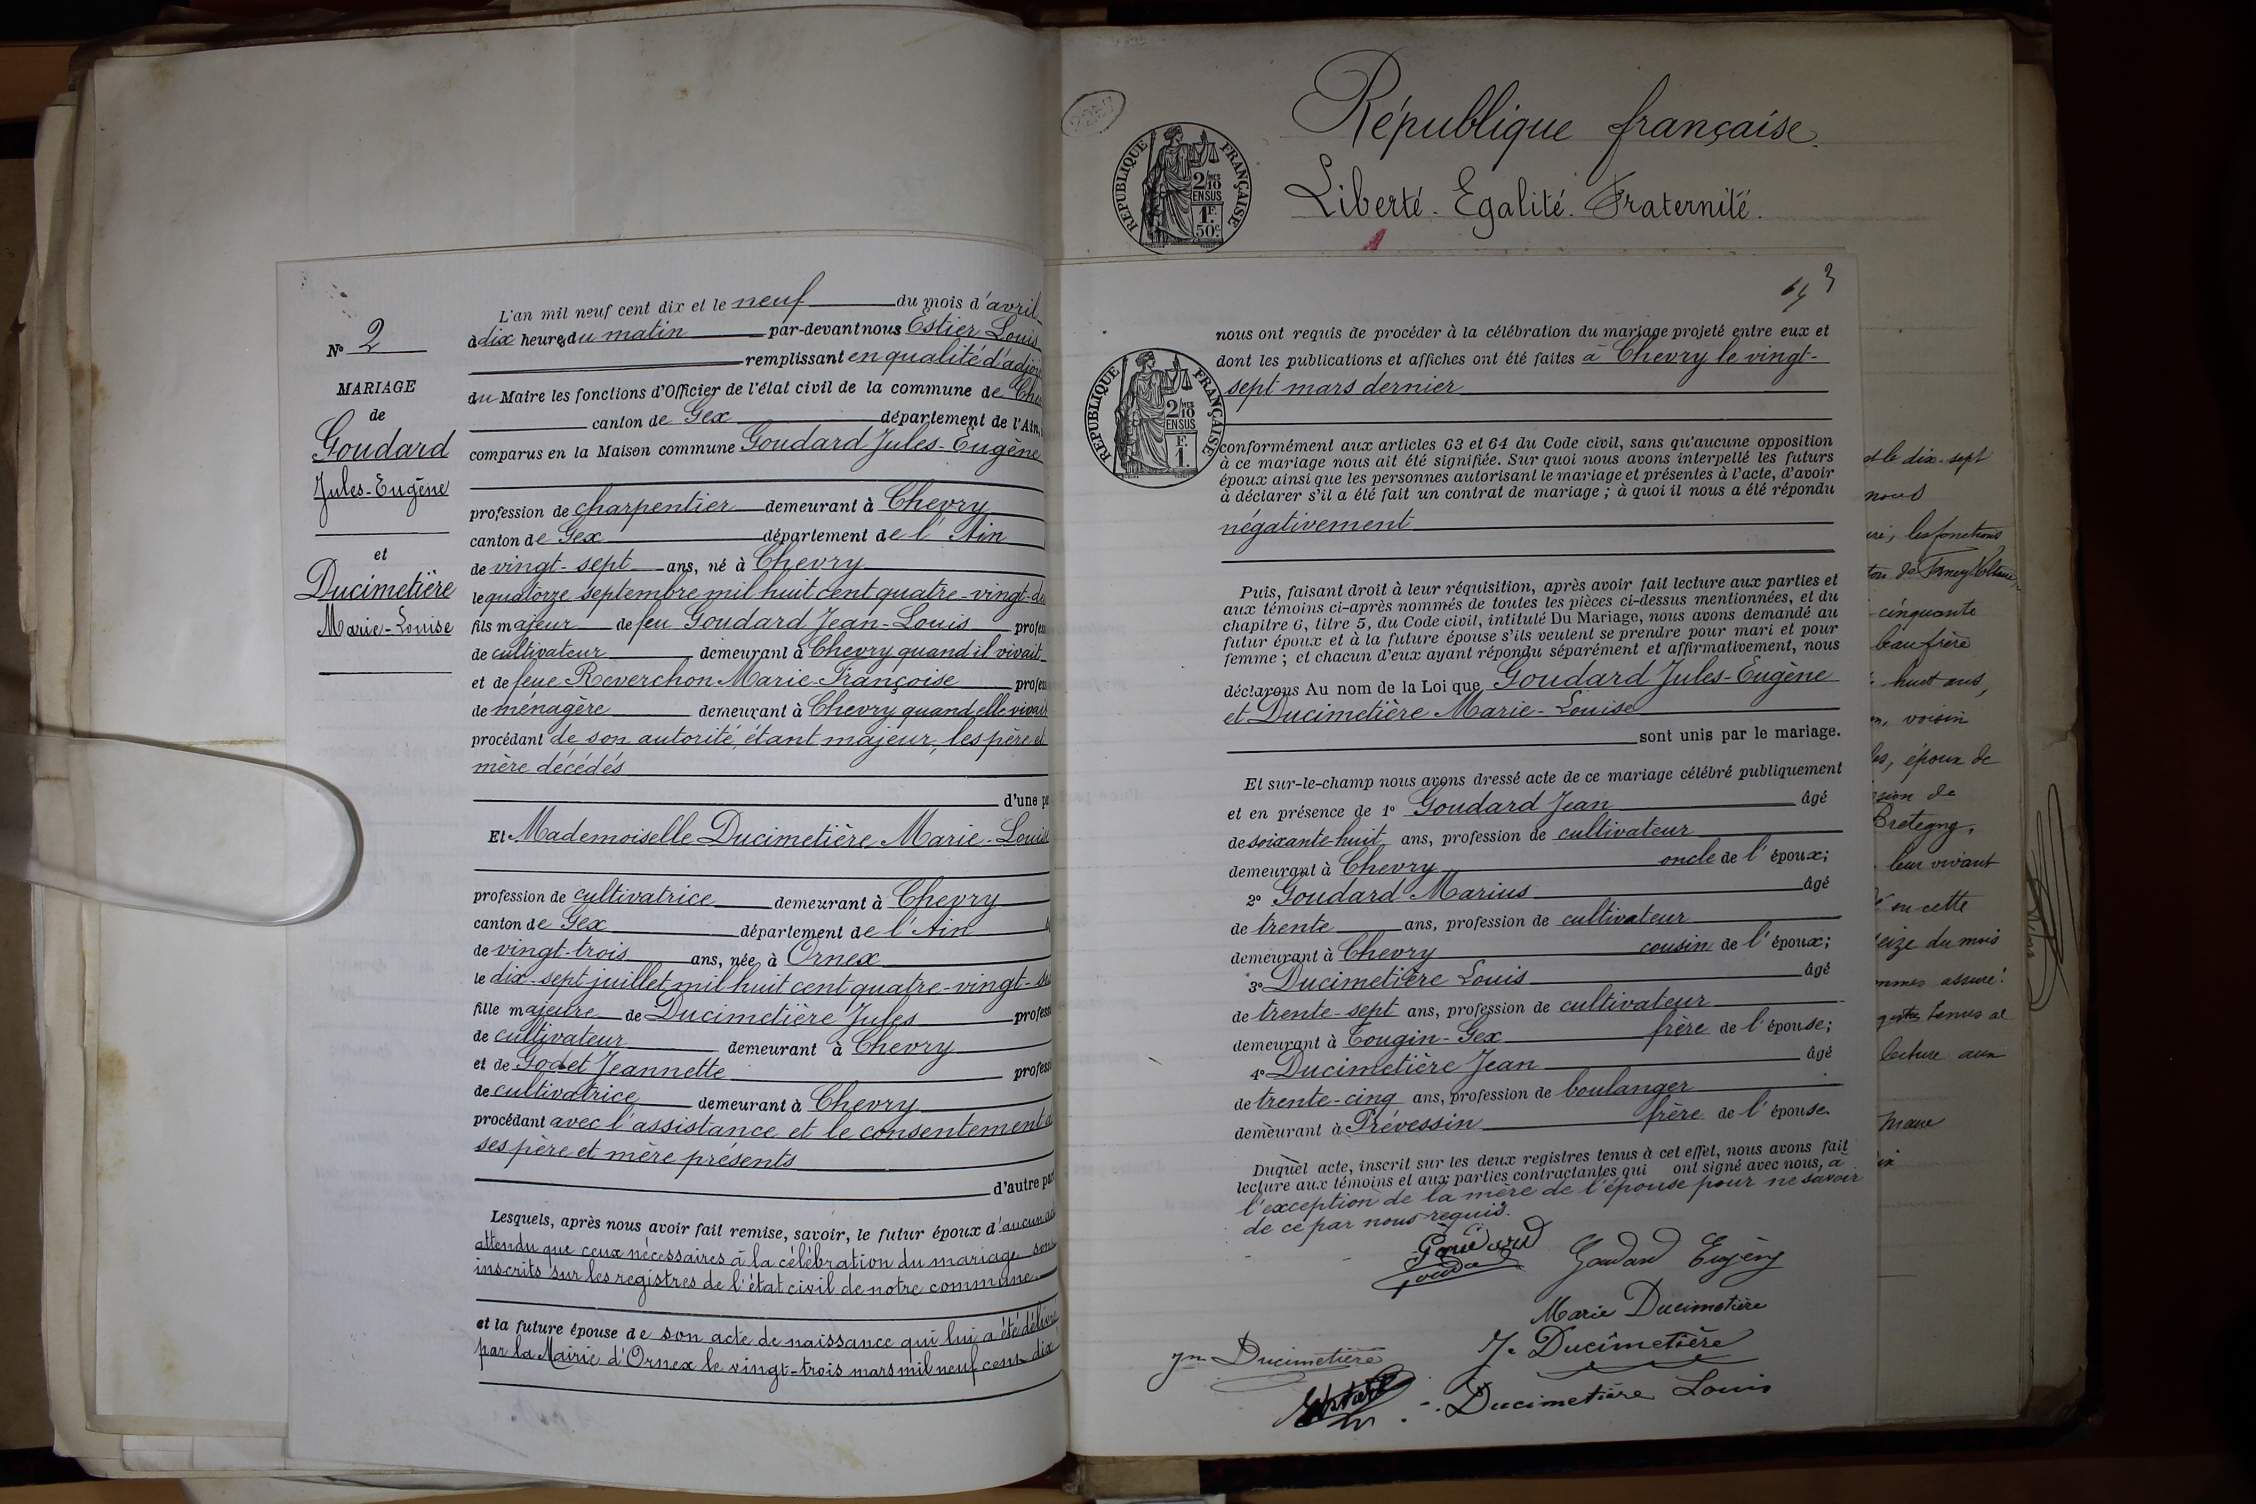 N° 2
MARIAGE
de
Goudard
Jules-Eugène
et
Ducimetière
Marie-Louise
L'an mil neuf cent dix et le neuf du mois d'avril
à dix heures du matin par-devant nous Estier Louis
remplissant en qualité d'adjoi
du Maire les fonctions d'Officier de l'état civil de la commune de Che
canton de Gex département de l'Ain,
comparus en la Maison commune Goudard Jules-Eugène
profession de charpentier demeurant à Chevry
canton de Gex département de l'Ain
de vingt-sept ans, né à Chevry
le quatorze septembre mil huit cent quatre-vingt-de
fils majeur de feu Goudard Jean-Louis profes
de cultivateur demeurant à Chevry quand il vivait
et de feue Reverchon Marie-Françoise profes
de ménagère demeurant à Chevry quand elle vivait
procédant de son autorité, étant majeur, les père et
mère décédés
d'une pa
Et Mademoiselle Ducimetière Marie-Louise
profession de cultivatrice demeurant à Chevry
canton de Gex département de l'Ain
de vingt-trois ans, née à Ornex
le dix-sept juillet mil huit cent quatre-vingt-si
fille majeure de Ducimetière Jules profess
de cultivateur demeurant à Chevry
et de Godet Jeannette profess
de cultivatrice demeurant à Chevry
procédant avec l'assistance et le consentement d
ses père et mère présents
d'autre part
Lesquels, après nous avoir fait remise, savoir, le futur époux d'aucun ac
attendu que ceux nécessaires à la célébration du mariage sont
inscrits sur les registres de l'état civil de notre commune
et la future épouse de son acte de naissance qui lui a été délivré
par la Mairie d'Ornex le vingt-trois mars mil neuf cent dix
République française.
Liberté. Egalité. Fraternité.
RÉPUBLIQUE FRANÇAISE
2/10 EN SUS
1F. 50c.
3
RÉPUBLIQUE FRANÇAISE
2/10 EN SUS
F. 1.
nous ont requis de procéder à la célébration du mariage projeté entre eux et
dont les publications et affiches ont été faites à Chevry le vingt-
sept mars dernier
conformément aux articles 63 et 64 du Code civil, sans qu'aucune opposition
à ce mariage nous ait été signifiée. Sur quoi nous avons interpellé les futurs
époux ainsi que les personnes autorisant le mariage et présentes à l'acte, d'avoir
à déclarer s'il a été fait un contrat de mariage ; à quoi il nous a été répondu
négativement
Puis, faisant droit à leur réquisition, après avoir fait lecture aux parties et
aux témoins ci-après nommés de toutes les pièces ci-dessus mentionnées, et du
chapitre 6, titre 5, du Code civil, intitulé Du Mariage, nous avons demandé au
futur époux et à la future épouse s'ils veulent se prendre pour mari et pour
femme ; et chacun d'eux ayant répondu séparément et affirmativement, nous
déclarons Au nom de la Loi que Goudard Jules-Eugène
et Ducimetière Marie-Louise
sont unis par le mariage.
Et sur-le-champ nous avons dressé acte de ce mariage célébré publiquement
et en présence de 1° Goudard Jean âgé
de soixante-huit ans, profession de cultivateur
demeurant à Chevry oncle de l'époux;
2° Goudard Marius âgé
de trente ans, profession de cultivateur
demeurant à Chevry cousin de l'époux;
3° Ducimetière Louis âgé
de trente-sept ans, profession de cultivateur
demeurant à Tougin-Gex frère de l'épouse;
4° Ducimetière Jean âgé
de trente-cinq ans, profession de boulanger
demeurant à Prévessin frère de l'épouse.
Duquel acte, inscrit sur les deux registres tenus à cet effet, nous avons fait
lecture aux témoins et aux parties contractantes qui ont signé avec nous, à
l'exception de la mère de l'épouse pour ne savoir
de ce par nous requis.
Goudard Eugène
Marie Ducimetière
J. Ducimetière
Jn Ducimetière
Ducimetière Louis
et le dix-sept
nous
les fonctions
cinquante
beau frère
huit ans,
voisin
époux de
de
Bretegny,
leur vivant
en cette
du mois
assuré
tenus à
lecture aux